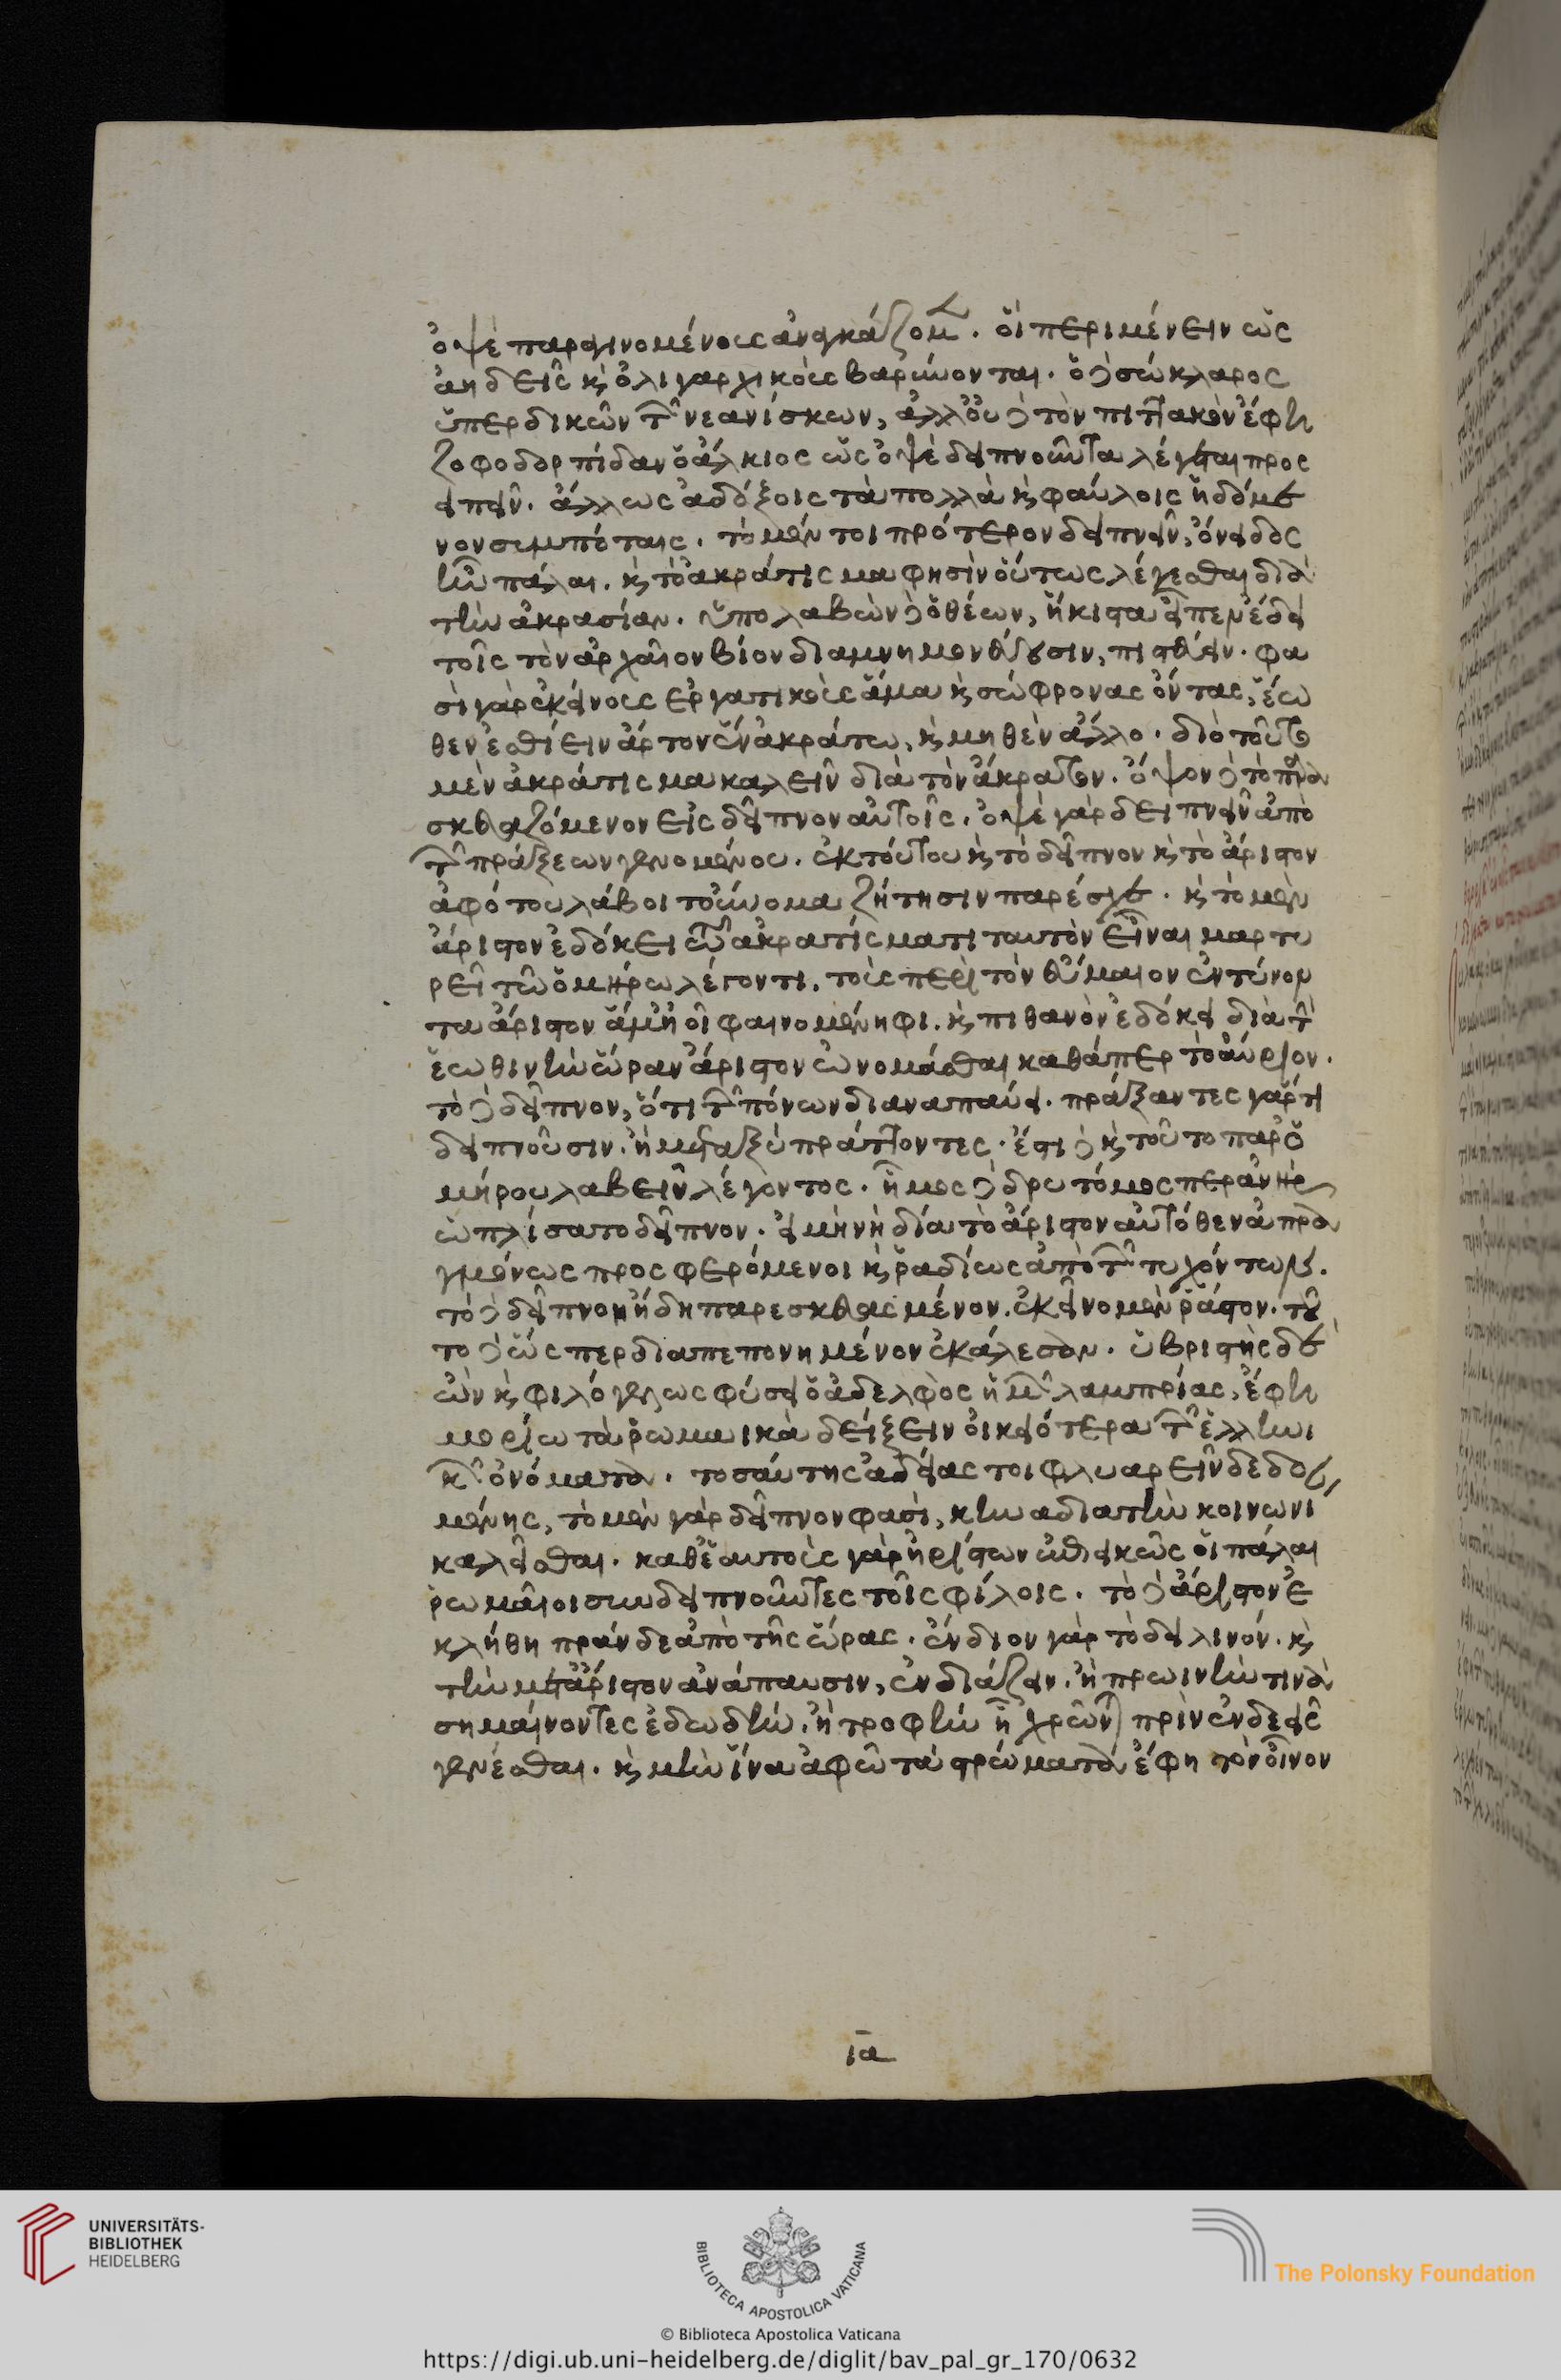 ὀψὲ παραγινομένους ἀναγκάζομεν. οἱ περιμένειν ὡς
ἀηδεῖς ϗ ὀλιγαρχικοὺς βαρύνονται. ὁ δὲ σώκλαρος
ὑπερδικῶν τῶν νεανίσκων, ἀλλ' οὐδὲ τὸν πιττακὸν ἔφη
ζοφοδορπίδαν ὁ ἄλκιος ὡς ὀψὲ δειπνοῦντα λέγεται προς
ειπεῖν. ἄλλως ἀδόξοις τὰ πολλὰ ϗ φαύλοις ἡδόμε
νον συμπόταις. τὸ μέντοι πρότερον δειπνεῖν, ὄνειδος
ἦν πάλαι. ϗ τὸ ἀκράτισμα φησὶν οὕτως λέγεσθαι διὰ
τὴν ἀκρασίαν. ὑπολαβὼν δὲ ὁ θέων, ἥκιστα εἶπεν ἔδει
τοῖς τὸν ἀρχαῖον βίον διαμνημονεύουσιν, πιστεύειν. φα
σὶ γὰρ ἐκείνους εργατικοὺς ἅμα ϗ σώφρονας ὄντας, ἕω
θεν ἐσθίειν ἄρτον ἐν ἀκράτω, ϗ μηθὲν ἄλλο. διὸ τοῦτο
μὲν ἀκράτισμα καλεῖν διὰ τὸν ἄκρατον. ὄψον δὲ τὸ παρα
σκευαζόμενον εἰς δεῖπνον αὐτοῖς. ὀψὲ γὰρ δειπνεῖν ἀπὸ
τῶν πράξεων γενομένους. ἐκ τούτου ϗ τὸ δεῖπνον ϗ τὸ ἄριστον
ἀφ' ὅτου λάβοι τοὔνομα ζήτησιν παρέσχε. ϗ τὸ μὲν
ἄριστον ἐδόκει τῶ ἀκρατίσματι ταυτὸν εἶναι μαρτυ
ρεῖ τῶ ὁμήρω λέγοντι. τοὺς περὶ τὸν εὔμαιον ἐντύνον
τα ἄριστον ἅμ' ἠοῖ φαινομένηφι. ϗ πιθανὸν ἐδόκει διὰ τὴν
ἑωθινὴν ὥραν ἄριστον ὠνομάσθαι καθάπερ τὸ αὔριον.
τὸ δὲ δεῖπνον, ὅτι τῶν πόνων διαναπαύει. πράξαντες γάρ τι
δειπνοῦσιν. ἢ μεταξὺ πράττοντες. ἔστι δὲ ϗ τοῦτο παρ' ὁ
μήρου λαβεῖν λέγοντος. ἦμος δὲ δρυτόμος περ ἀνὴρ
ὡπλίσατο δεῖπνον. εἰ μὴ νὴ δία τὸ ἄριστον αὐτόθεν ἀπρα
γμόνως προσφερόμενοι ϗ ῥαδίως ἀπὸ τῶν τυχόντων.
τὸ δὲ δεῖπνον ἤδη παρεσκευασμένον. ἐκεῖνο μὲν ῥᾶστον. τοῦ
το δὲ ὥσπερ διαπεπονημένον ἐκάλεσαν. ὑβριστὴς δὲ
ὢν ϗ φιλόγελως φύσει ὁ ἀδελφὸς ἡμῶν λαμπρίας, ἔφη
μυρίω τὰ ῥωμαικὰ δείξειν οἰκειότερα τῶν ἑλληνι
κῶν ὀνόματα. τοσαύτης ἀδείας τοι φλυαρεῖν δεδο
μένης, τὸ μὲν γὰρ δεῖπνον φασὶ, κῆνα διὰ τὴν κοινωνί
καλεῖσθαι. καθ' ἑαυτοὺς γὰρ ἠρίστων ἐπιεικῶς οἱ πάλαι
ῥωμαῖοι συνδειπνοῦντες τοῖς φίλοις. τὸ δὲ ἄριστον ἐ
κλήθη πράνδε ἀπὸ τῆς ὥρας. ἔνδιον γὰρ τὸ δειλινόν. ϗ
τὴν μετ' ἄριστον ἀνάπαυσιν, ἐνδιάζειν. ἢ πρωινὴν τινὰ
σημαίνοντες ἐδωδὴν. ἢ τροφὴν ἧ χρῶνται πρὶν ἐνδεεῖς
γενέσθαι. ϗ μὴν ἵνα ἀφῶ τὰ στρώματα ἔφη τὸν οἶνον
ια
UNIVERSITÄTS-
BIBLIOTHEK
HEIDELBERG
BIBLIOTECA APOSTOLICA VATICANA
The Polonsky Foundation
© Biblioteca Apostolica Vaticana
https://digi.ub.uni-heidelberg.de/diglit/bav_pal_gr_170/0632